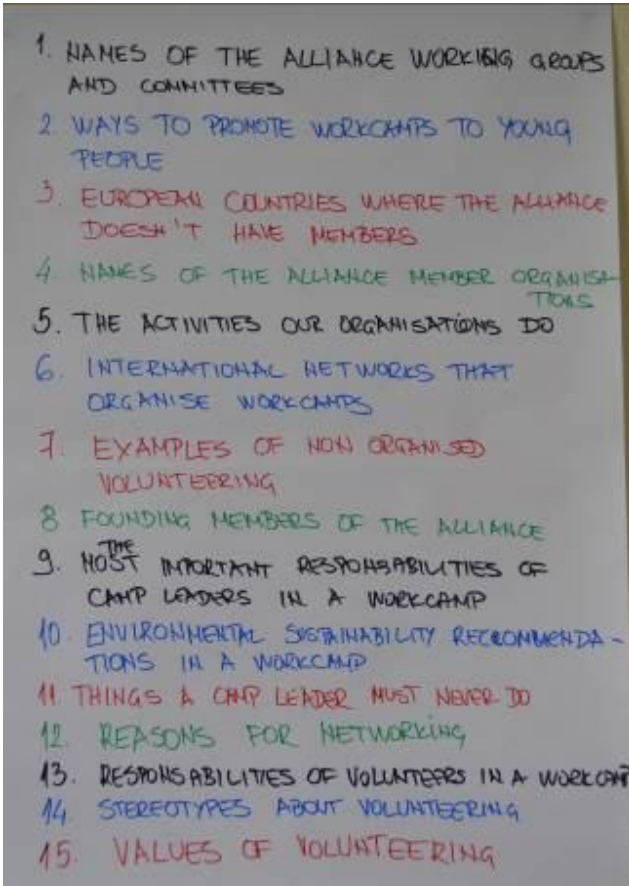 1. NAMES OF THE ALLIANCE WORKING GROUPS
AND COMMITTEES
2. WAYS TO PROMOTE WORKCAMPS TO YOUNG
PEOPLE
3. EUROPEAN COUNTRIES WHERE THE ALLIANCE
DOESN'T HAVE MEMBERS
4. NAMES OF THE ALLIANCE MEMBER ORGANISA-
TIONS
5. THE ACTIVITIES OUR ORGANISATIONS DO
6. INTERNATIONAL NETWORKS THAT
ORGANISE WORKCAMPS
7. EXAMPLES OF NON ORGANISED
VOLUNTEERING
8 FOUNDING MEMBERS OF THE ALLIANCE
THE
9. MOST IMPORTANT RESPONSABILITIES OF
CAMP LEADERS IN A WORKCAMP
10. ENVIRONMENTAL SUSTAINABILITY RECCOMMENDA-
TIONS IN A WORKCAMP
11 THINGS A CAMP LEADER MUST NEVER DO
12 REASONS FOR NETWORKING
13. RESPONSABILITIES OF VOLUNTEERS IN A WORKCAMP
14 STEREOTYPES ABOUT VOLUNTEERING
15. VALUES OF VOLUNTEERING